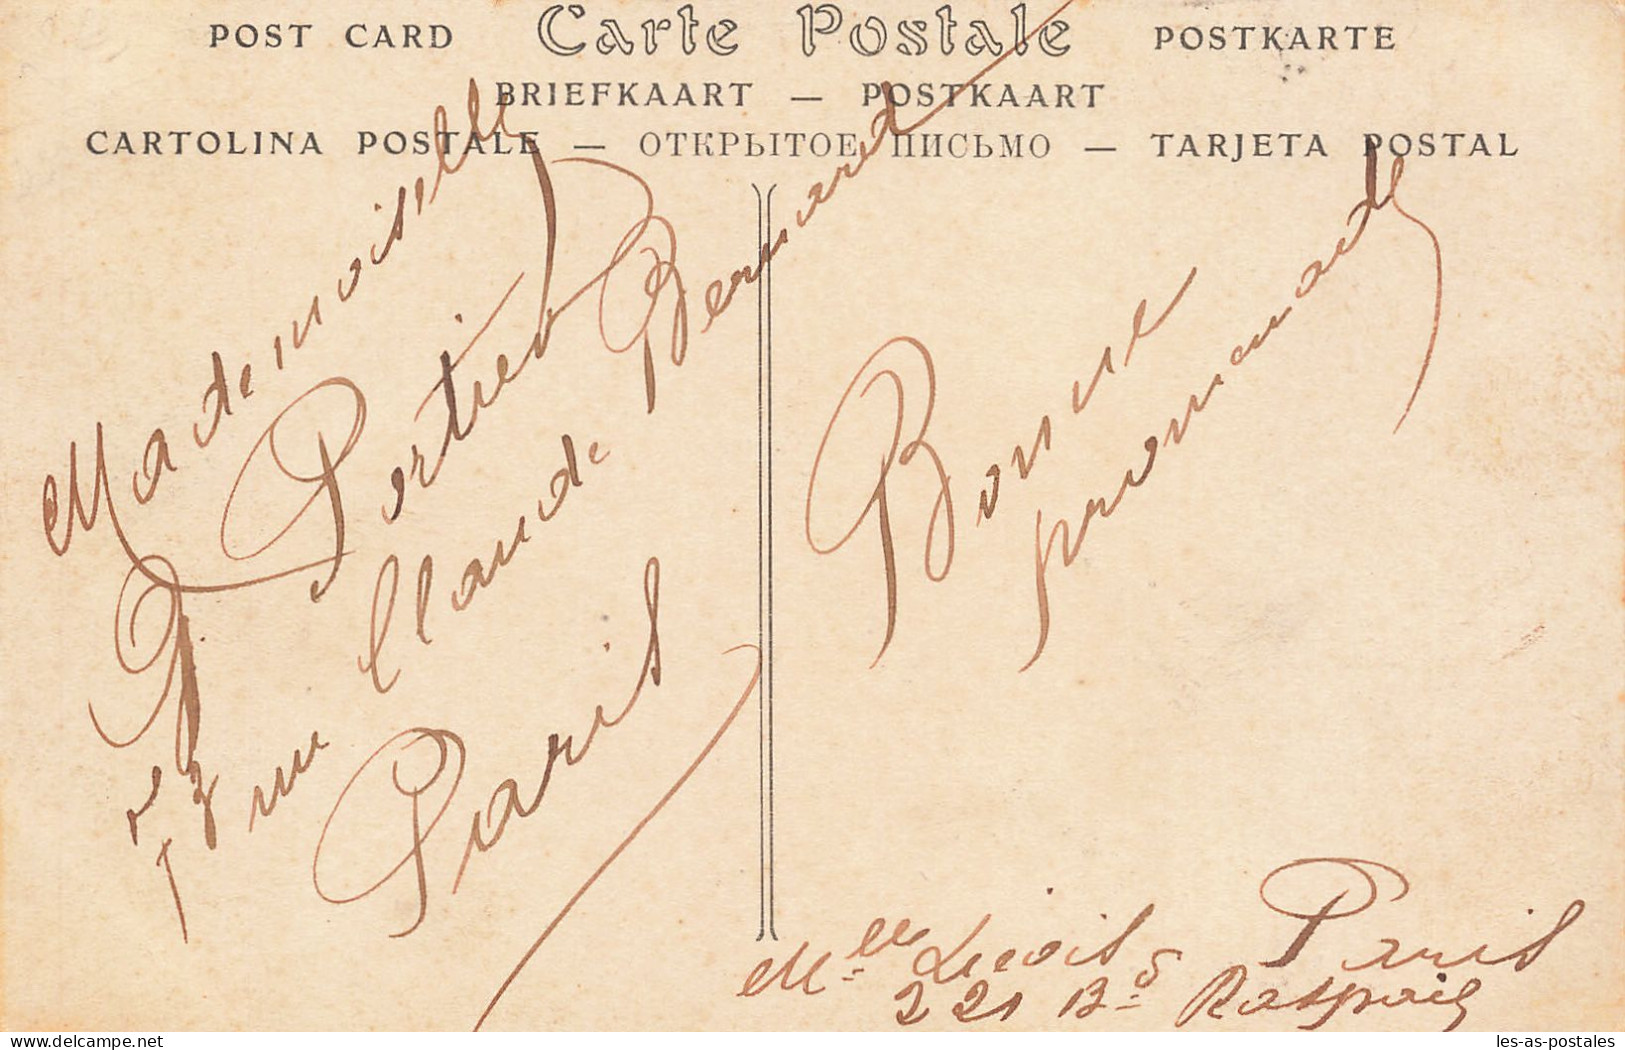 POST CARD Carte Postale POSTKARTE
BRIEFKAART — POSTKAART
CARTOLINA POSTALE — ОТКРЫТОЕ ПИСЬМО — TARJETA POSTAL
Mademoiselle
Portier
rue Claude Bernard
Paris
Bonne
promenade
Mlle Paris
221 Bd Raspail
delcampe.net
les-as-postales